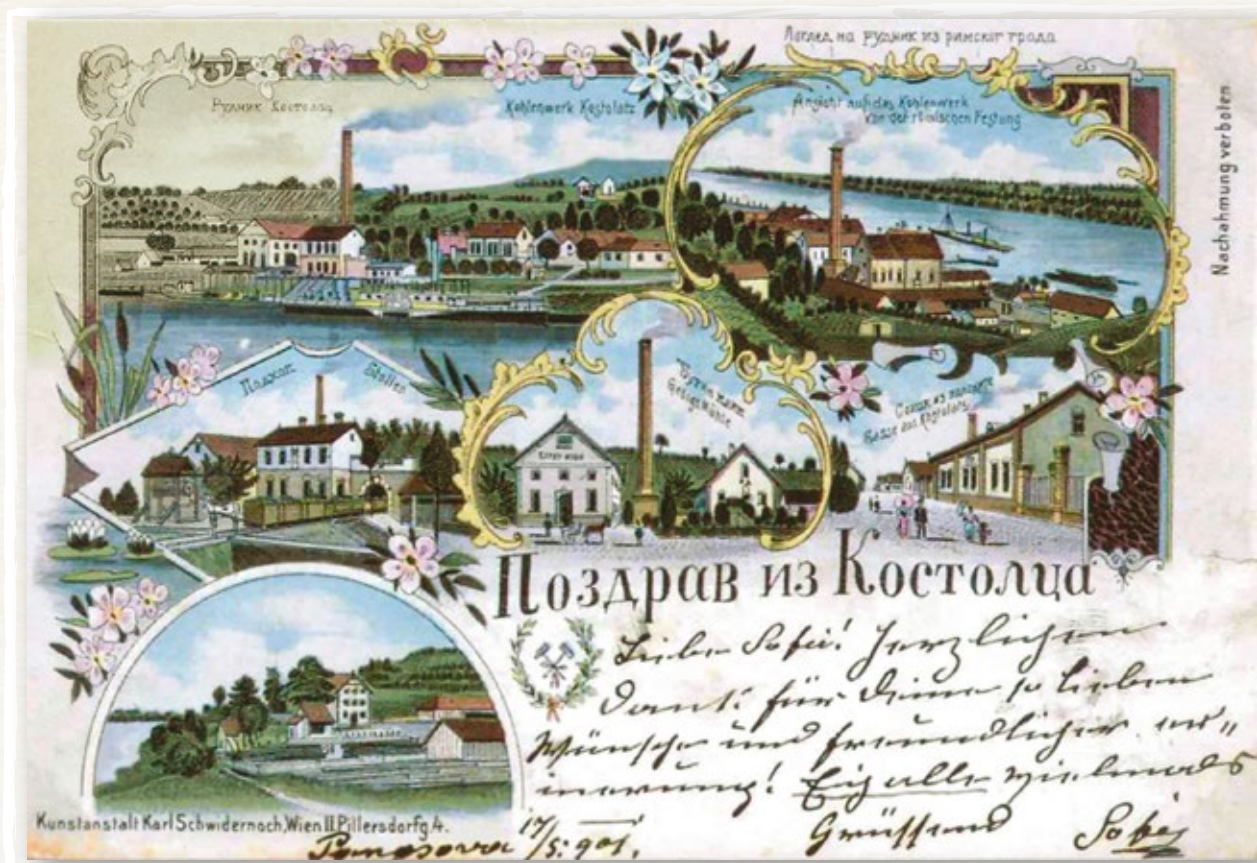 Поглед на рудник из римског града
Рудник Костолац
Kohlenwerk Kostolatz
Ansicht auf das Kohlenwerk
von der römischen Festung
Nachahmung verboten
Поткоп
Stollen
Gasse aus Kostolatz
Поздрав из Костолца
Liebe Sofie! Herzlichen
Dank für Deine so lieben
Wünsche und freundlicher er„
innerung! Euch alle vielmals
Grüssend Sofie
Kunstanstalt Karl Schwidernoch, Wien II. Pillersdorfg. 4.
Pancsova 17/5. 901.